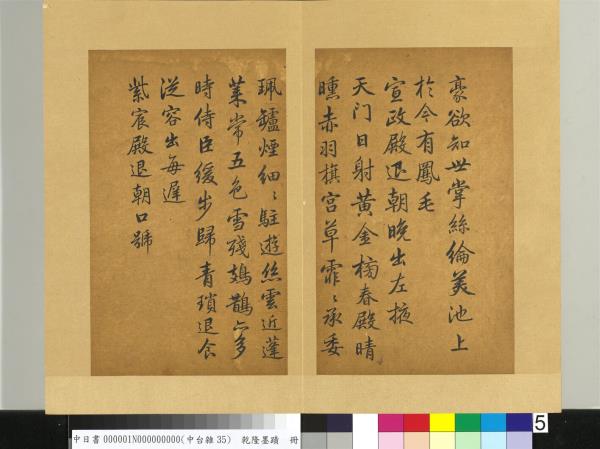 豪欲知世掌絲綸美池上
於今有鳳毛
宣政殿退朝晚出左掖
天门日射黃金榜春殿晴
曛赤羽旗宮草霏〻承委
珮鑪煙細〻駐遊絲雲近蓬
萊常五色雪殘鳷鵲亦多
時侍臣緩步歸青瑣退食
從容出每遲
紫宸殿退朝口號
中日書 000001N000000000(中台雜 35) 乾隆墨蹟 冊
5